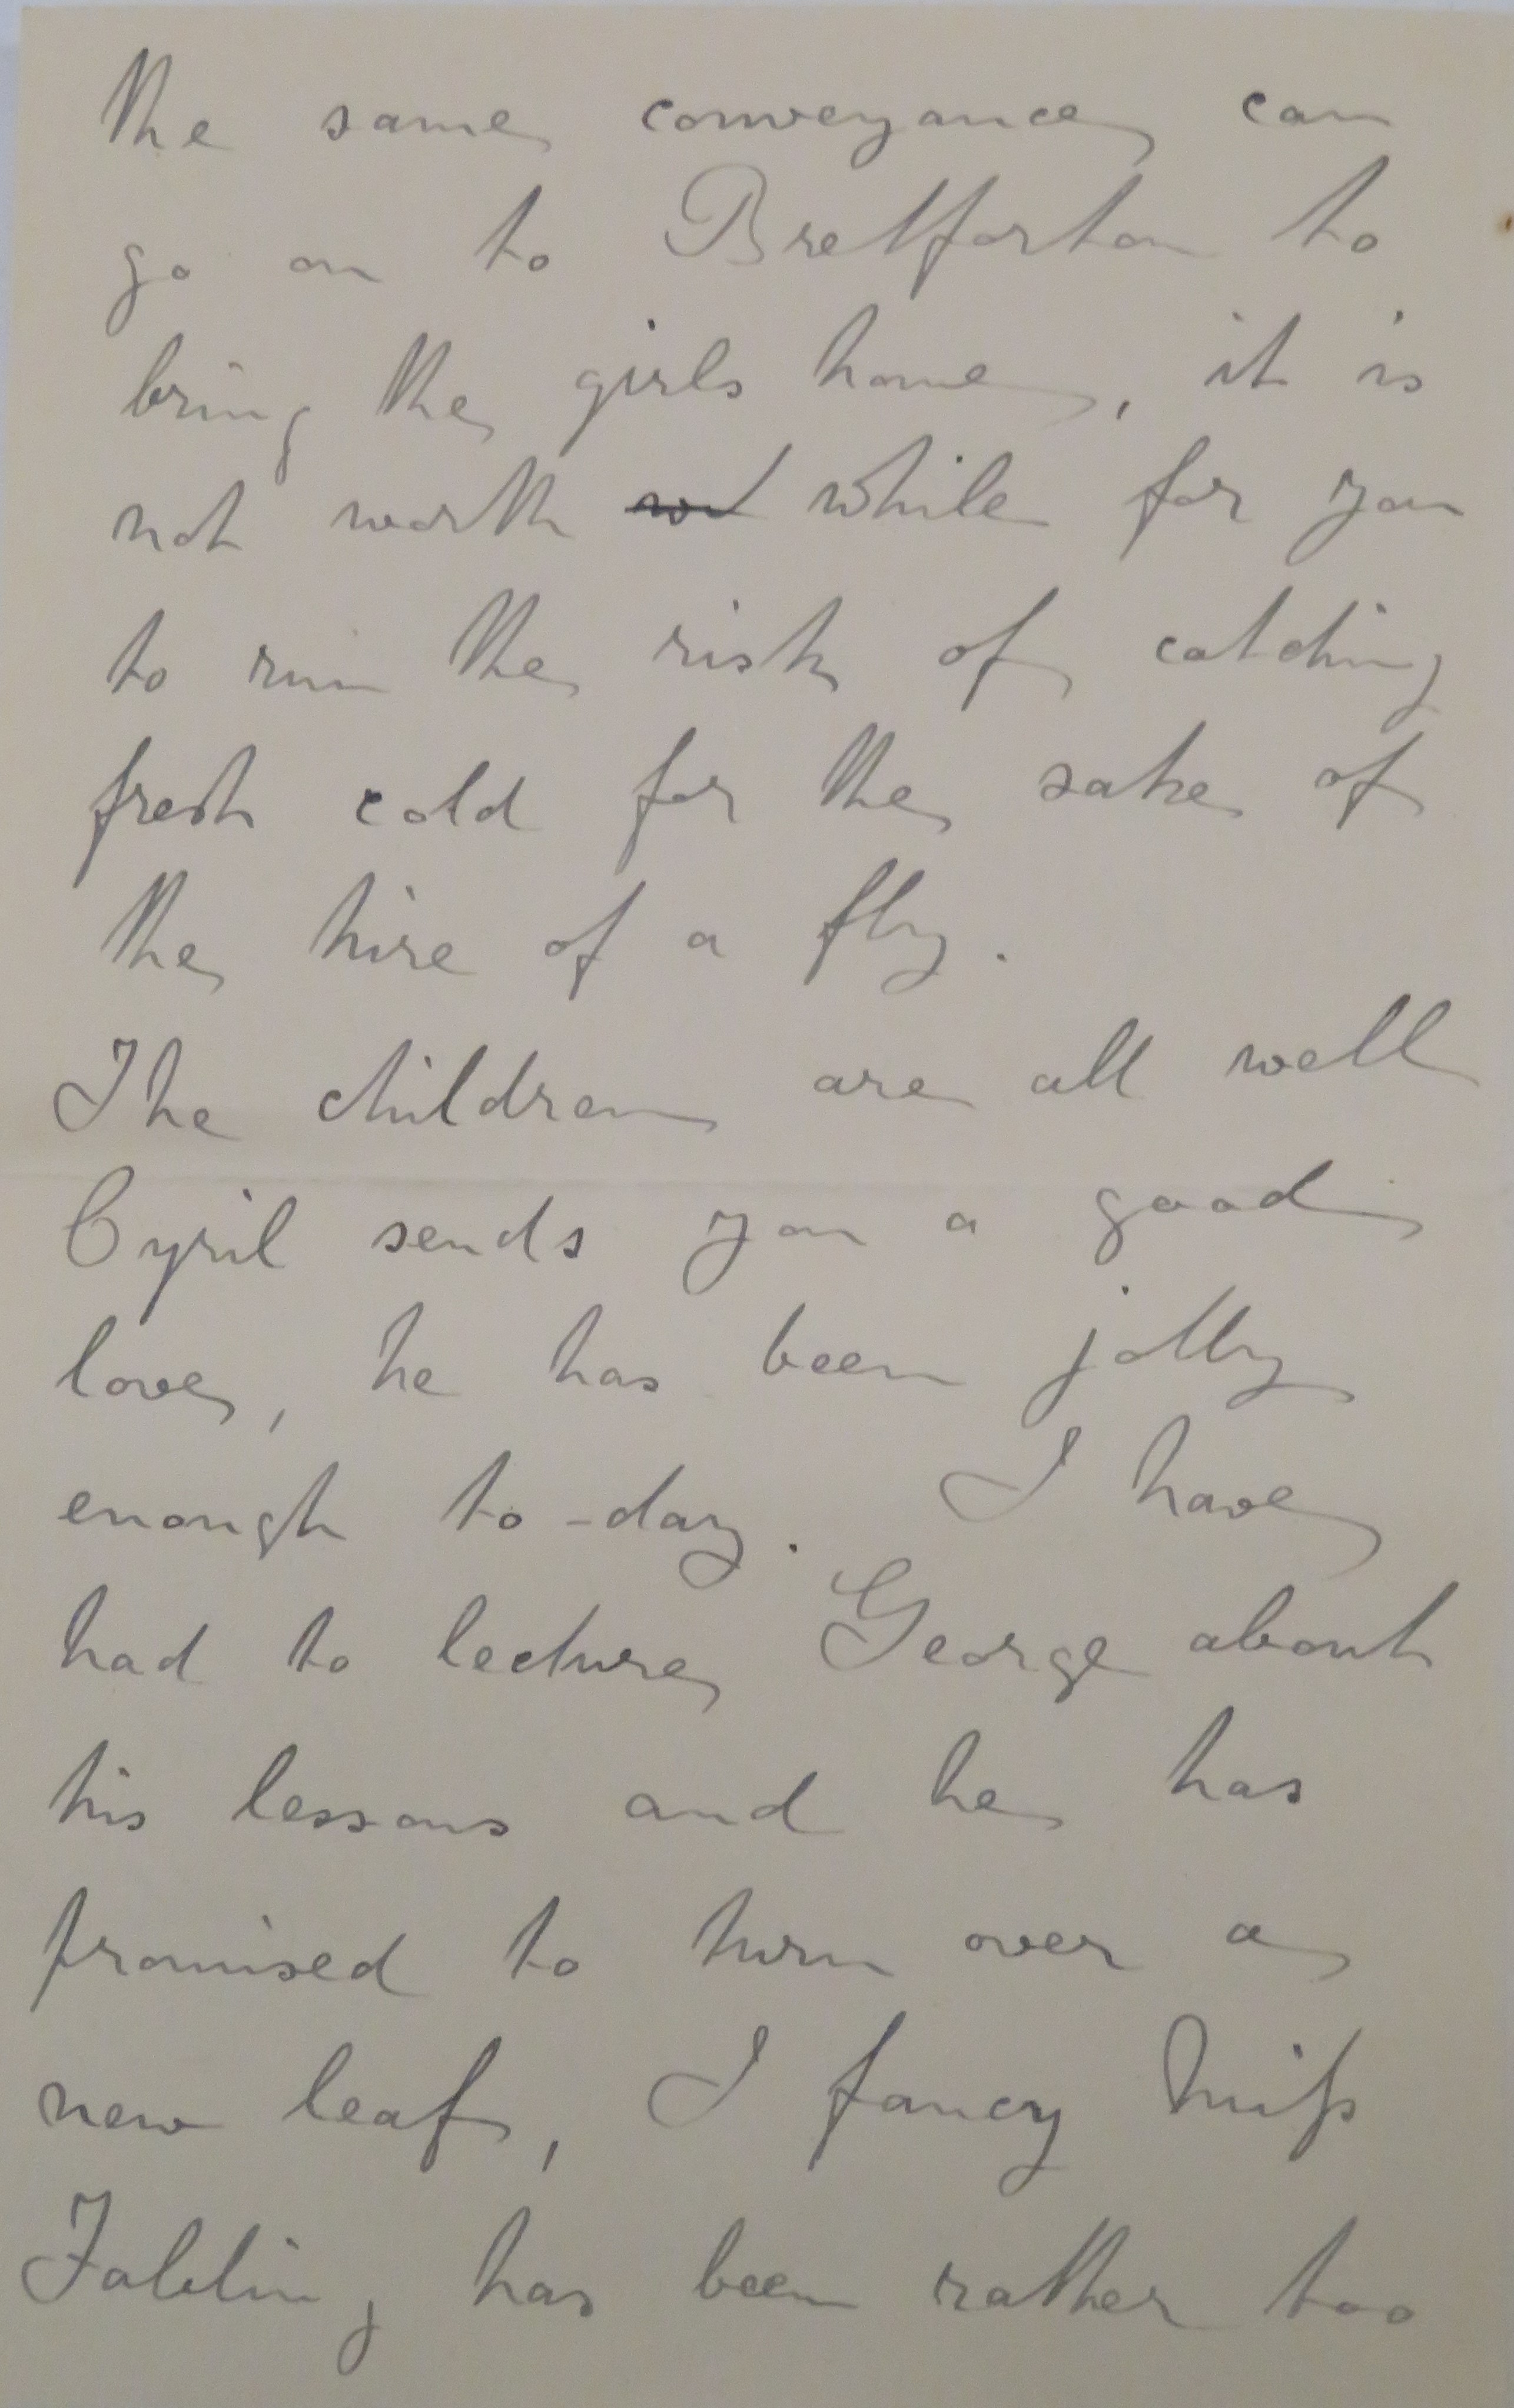 the same conveyance can
go on to Bretforton to
bring the girls home, it is
not worth wh while for you
to run the risk of catching
fresh cold for the sake of
the hire of a fly.
The children are all well
Cyril sends you a good
love, he has been jolly
enough to-day. I have
had to lecture George about
his lessons and he has
promised to turn over a
new leaf, I fancy Miss
has been rather too